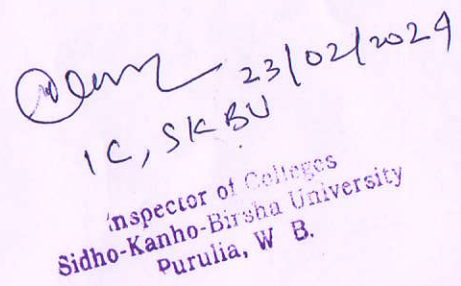 23/02/2024
IC, SKBU
Inspector of Colleges
Sidho-Kanho-Birsha University
Purulia, W B.